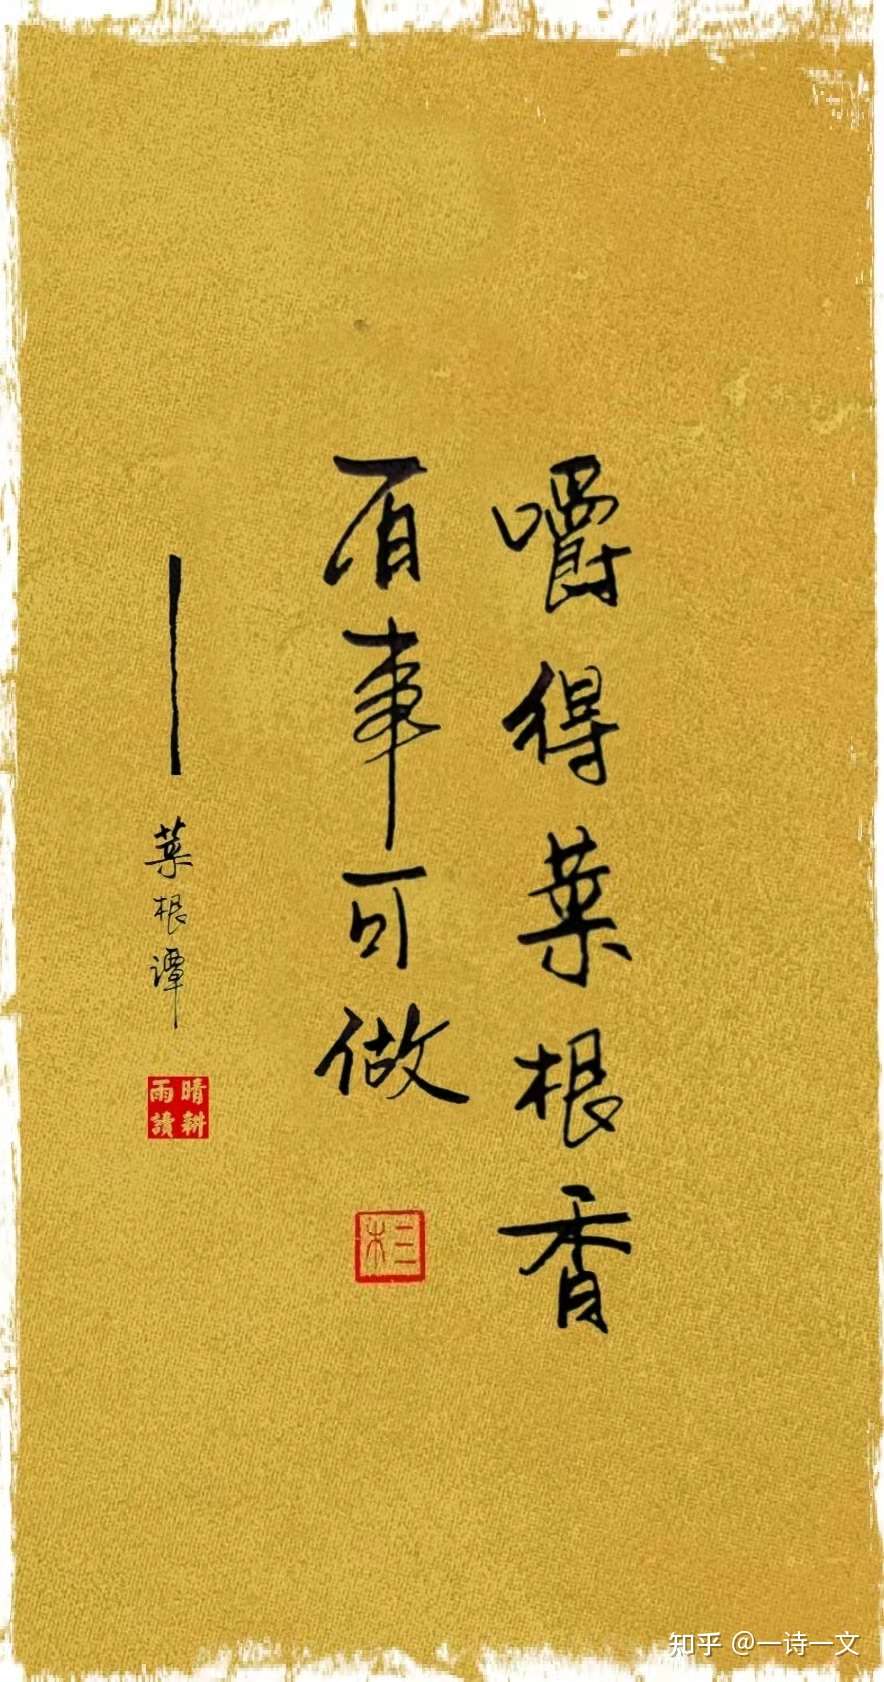 嚼得菜根香
百事可做
——菜根谭
晴耕
雨讀
三木
知乎 @一诗一文